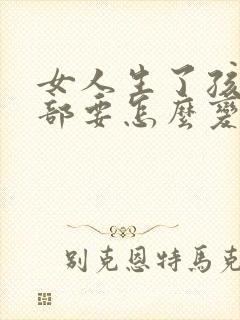 女人生了孩
部要怎麼變
別克恩特馬克